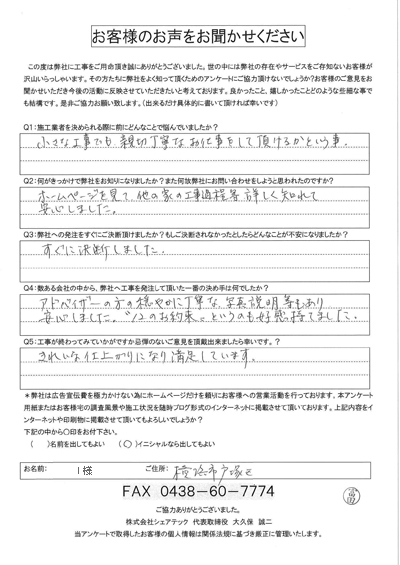 お客様のお声をお聞かせください
この度は弊社に工事をご用命頂き誠にありがとうございました。世の中には弊社の存在やサービスをご存知ないお客様が
沢山いらっしゃいます。その方たちに弊社をよく知って頂くためのアンケートにご協力頂けないでしょうか?お客様のご意見をお
聞かせいただき今後の活動に反映させていただきたいと考えております。良かったこと、嬉しかったことどのような些細な事で
も結構です。是非ご協力お願い致します。(出来るだけ具体的に書いて頂ければ幸いです)
Q1:施工業者を決められる際に前にどんなことで悩んでいましたか?
小さな工事でも親切丁寧なお仕事をして頂けるかという事。
Q2:何がきっかけで弊社をお知りになりましたか?また何故弊社にお問い合わせをしようと思われたのですか?
ホームページを見て、他の家の工事過程等詳しく知れて
安心しました。
Q3:弊社への発注をすぐにご決断頂けましたか?もしご決断されなかったとしたらどんなことが不安になりましたか?
すぐに決断しました。
Q4:数ある会社の中から、弊社へ工事を発注して頂いた一番の決め手は何でしたか?
アドバイザーの方の穏やかに丁寧な、写真説明等もあり
安心しました。"12のお約束"というのも好感持てました。
Q5:工事が終わってみていかがですか忌憚のないご意見を頂戴出来ましたら幸いです。?
きれいな仕上がりになり満足しています。
*弊社は広告宣伝費を極力かけない為にホームページだけを頼りにお客様への営業活動を行っております。本アンケート
用紙またはお客様宅の調査風景や施工状況を随時ブログ形式のインターネットに掲載させて頂いております。上記内容をイ
ンターネットや印刷物に掲載させて頂いてもよろしいでしょうか?
下記の中から○印をお付下さい。
( )名前を出してもよい (○)イニシャルなら出してもよい
お名前: I様 ご住所: 横浜市戸塚区
FAX 0438-60-7774
ご協力ありがとうございました。
株式会社シェアテック 代表取締役 大久保 誠二
当アンケートで取得したお客様の個人情報は関係法規に基づき厳正に管理いたします。